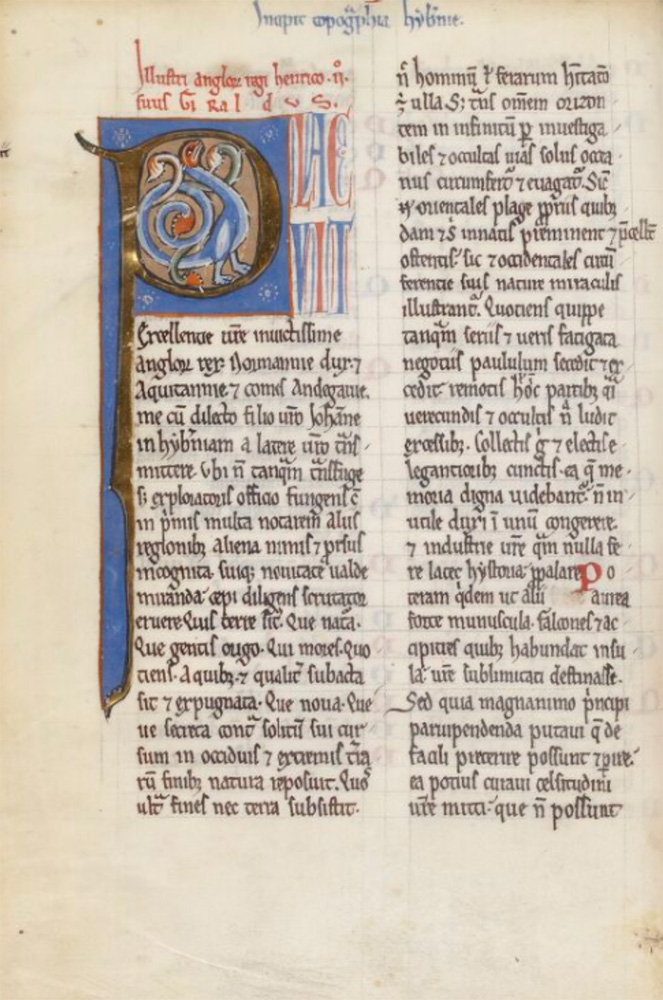 Incipit topog̃phia hyb̃nie.
Illustri angloꝝ regi henrico .ij.
suus Gi Ral d v S.
PLAC
VIT
Excellentie ur̃e inuictissime
angloꝝ rex. Normannie dux. ⁊
Aquitannie. ⁊ comes Andegauie.
me cũ dilecto filio ur̃o Joh̃anne
in hyb̃niam a latere ur̃o tr̃ns
mittere. Vbi ñ tanq̃m tr̃nsfuge
sꝫ exploratoris officio fungens. c̃
in p̃mis multa notarem aliis
regionibꝫ aliena nimis ⁊ p̃rsus
incognita. suiqꝫ nouitate ualde
miranda. cepi diligens scrutator
eruere. Quis terre sit̃. Que nata.
Que gentis origo. Qui mores. Quo
ciens. A quibꝫ. ⁊ qualit̃ subacta
sit ⁊ expugnata. Que noua. Que
ue secreta cont̃ solitũ sui cur
sum in occiduis ⁊ extremis tr̃a
rũ finibꝫ natura reposuit. Quos
ult̃ fines nec terra subsistit.
ñ hominũ ł ferarum h̃itatio
ẽ ulla. Sꝫ tñs omẽm orizon
tem in infinitũ ꝑ inuestiga
biles ⁊ occultas uias solus occea
nus circumfert̃ ⁊ euagat̃. Sic̃
ñ orientales plage ꝓpriis quibꝫ
dam ⁊ s̃ innatis p̃eminent ⁊ p̃cellũt
ostentis. sic ⁊ occidentales circũ
ferentie suis nature miraculis
illustrant̃. Quociens quippe
tanq̃m seriis ⁊ ueris fatigata
negociis paululum secedit ⁊ ex
cedit. remotis h̃oc partibꝫ q̃i
uerecundis ⁊ occultis ñ ludit
excessibꝫ. Collectis g̃ ⁊ electis e
legantioribꝫ cunctis. ea q̃ me
moria digna uidebant̃. ñ in
utile duxi ĩ unũ congerere.
⁊ industrie ur̃e q̃m nulla fe
re latet hystoria. ꝓpalare. Po
teram q̃dem ut alii aurea
forte munuscula. falcones ⁊ ac
cipitres quibꝫ habundat insu
la. ur̃e sublimitati destinasse.
Sed quia magnanimo p̃ncipi
paruipendenda putaui q̃ de
facili preterire possunt ⁊ ꝑire.
ea potius curaui celsitudini
ur̃e mitti. que ñ possunt